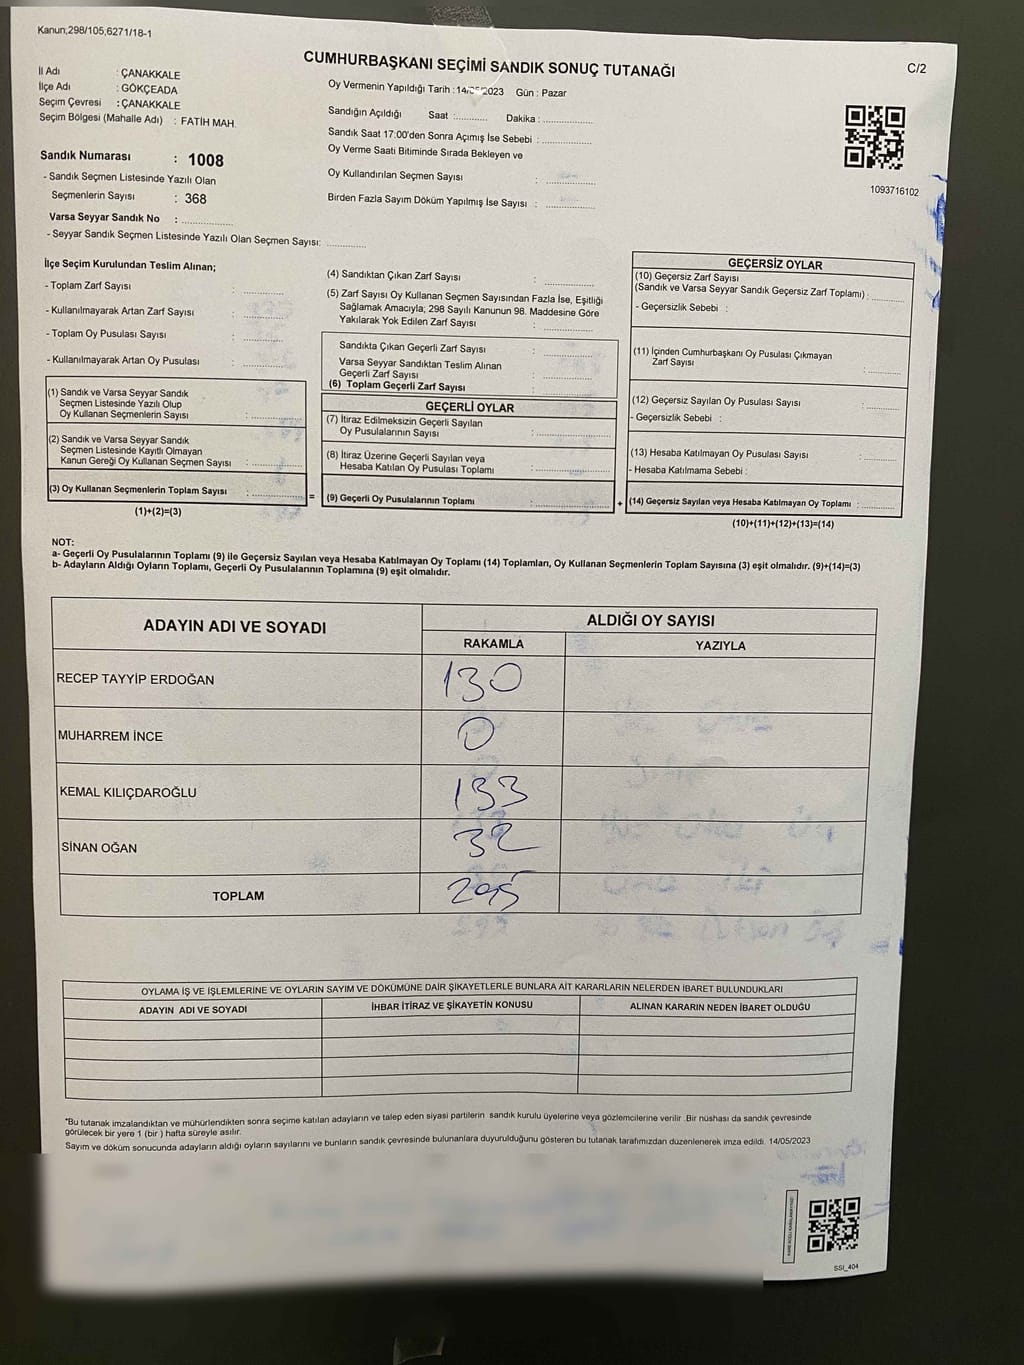 Kanun;298/105,6271/18-1
CUMHURBAŞKANI SEÇİMİ SANDIK SONUÇ TUTANAĞI
C/2
İl Adı : ÇANAKKALE
İlçe Adı : GÖKÇEADA
Seçim Çevresi : ÇANAKKALE
Seçim Bölgesi (Mahalle Adı) : FATİH MAH.
Oy Vermenin Yapıldığı Tarih : 14/05/2023 Gün : Pazar
Sandığın Açıldığı Saat :........... Dakika :................
Sandık Saat 17:00'den Sonra Açımış İse Sebebi :................
Oy Verme Saati Bitiminde Sırada Bekleyen ve
Oy Kullandırılan Seçmen Sayısı :................
Birden Fazla Sayım Döküm Yapılmış İse Sayısı :................
1093716102
Sandık Numarası : 1008
- Sandık Seçmen Listesinde Yazılı Olan
Seçmenlerin Sayısı : 368
Varsa Seyyar Sandık No :................
- Seyyar Sandık Seçmen Listesinde Yazılı Olan Seçmen Sayısı: ............
İlçe Seçim Kurulundan Teslim Alınan;
- Toplam Zarf Sayısı :............
- Kullanılmayarak Artan Zarf Sayısı :............
- Toplam Oy Pusulası Sayısı :............
- Kullanılmayarak Artan Oy Pusulası :............
(1) Sandık ve Varsa Seyyar Sandık
Seçmen Listesinde Yazılı Olup
Oy Kullanan Seçmenlerin Sayısı :................
(2) Sandık ve Varsa Seyyar Sandık
Seçmen Listesinde Kayıtlı Olmayan
Kanun Gereği Oy Kullanan Seçmen Sayısı :................
(3) Oy Kullanan Seçmenlerin Toplam Sayısı :................
(1)+(2)=(3)
=
(4) Sandıktan Çıkan Zarf Sayısı :................
(5) Zarf Sayısı Oy Kullanan Seçmen Sayısından Fazla İse, Eşitliği
Sağlamak Amacıyla; 298 Sayılı Kanunun 98. Maddesine Göre
Yakılarak Yok Edilen Zarf Sayısı :................
Sandıkta Çıkan Geçerli Zarf Sayısı :................
Varsa Seyyar Sandıktan Teslim Alınan
Geçerli Zarf Sayısı :................
(6) Toplam Geçerli Zarf Sayısı :................
GEÇERLİ OYLAR
(7) İtiraz Edilmeksizin Geçerli Sayılan
Oy Pusulalarının Sayısı :................
(8) İtiraz Üzerine Geçerli Sayılan veya
Hesaba Katılan Oy Pusulası Toplamı :................
(9) Geçerli Oy Pusulalarının Toplamı :................
+
GEÇERSİZ OYLAR
(10) Geçersiz Zarf Sayısı
(Sandık ve Varsa Seyyar Sandık Geçersiz Zarf Toplamı) :............
- Geçersizlik Sebebi :
(11) İçinden Cumhurbaşkanı Oy Pusulası Çıkmayan
Zarf Sayısı :............
(12) Geçersiz Sayılan Oy Pusulası Sayısı :............
- Geçersizlik Sebebi :
(13) Hesaba Katılmayan Oy Pusulası Sayısı :............
- Hesaba Katılmama Sebebi :
(14) Geçersiz Sayılan veya Hesaba Katılmayan Oy Toplamı :............
(10)+(11)+(12)+(13)=(14)
NOT:
a- Geçerli Oy Pusulalarının Toplamı (9) ile Geçersiz Sayılan veya Hesaba Katılmayan Oy Toplamı (14) Toplamları, Oy Kullanan Seçmenlerin Toplam Sayısına (3) eşit olmalıdır. (9)+(14)=(3)
b- Adayların Aldığı Oyların Toplamı, Geçerli Oy Pusulalarının Toplamına (9) eşit olmalıdır.
ADAYIN ADI VE SOYADI ALDIĞI OY SAYISI
RAKAMLA YAZIYLA
RECEP TAYYİP ERDOĞAN 130
MUHARREM İNCE 0
KEMAL KILIÇDAROĞLU 133
SİNAN OĞAN 32
TOPLAM 295
OYLAMA İŞ VE İŞLEMLERİNE VE OYLARIN SAYIM VE DÖKÜMÜNE DAİR ŞİKAYETLERLE BUNLARA AİT KARARLARIN NELERDEN İBARET BULUNDUKLARI
ADAYIN ADI VE SOYADI İHBAR İTİRAZ VE ŞİKAYETİN KONUSU ALINAN KARARIN NEDEN İBARET OLDUĞU
*Bu tutanak imzalandıktan ve mühürlendikten sonra seçime katılan adayların ve talep eden siyasi partilerin sandık kurulu üyelerine veya gözlemcilerine verilir .Bir nüshası da sandık çevresinde
görülecek bir yere 1 (bir ) hafta süreyle asılır.
Sayım ve döküm sonucunda adayların aldığı oyların sayılarını ve bunların sandık çevresinde bulunanlara duyurulduğunu gösteren bu tutanak tarafımızdan düzenlenerek imza edildi. 14/05/2023
SSI_404